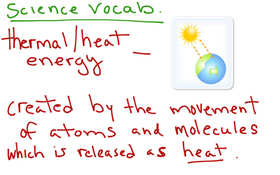 Science Vocab.
thermal/heat
energy —
created by the movement
of atoms and molecules
which is released as heat.